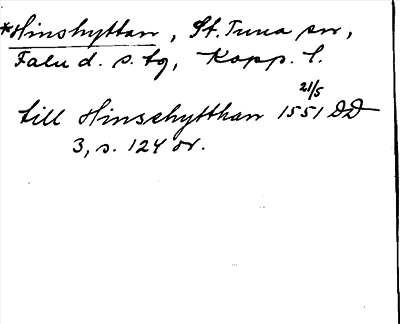 *Hinshyttan, St. Tuna sn,
Falu d. s. tg, Kopp. l.
till Hinsehytthan 21/5 1551 DD
3, s. 124 or.